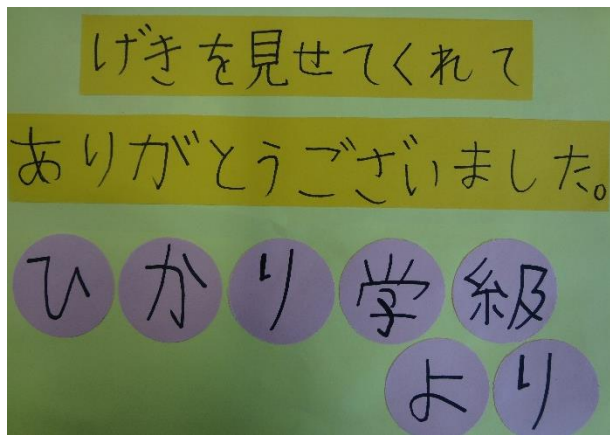 げきを見せてくれて
ありがとうございました。
ひかり学級
より